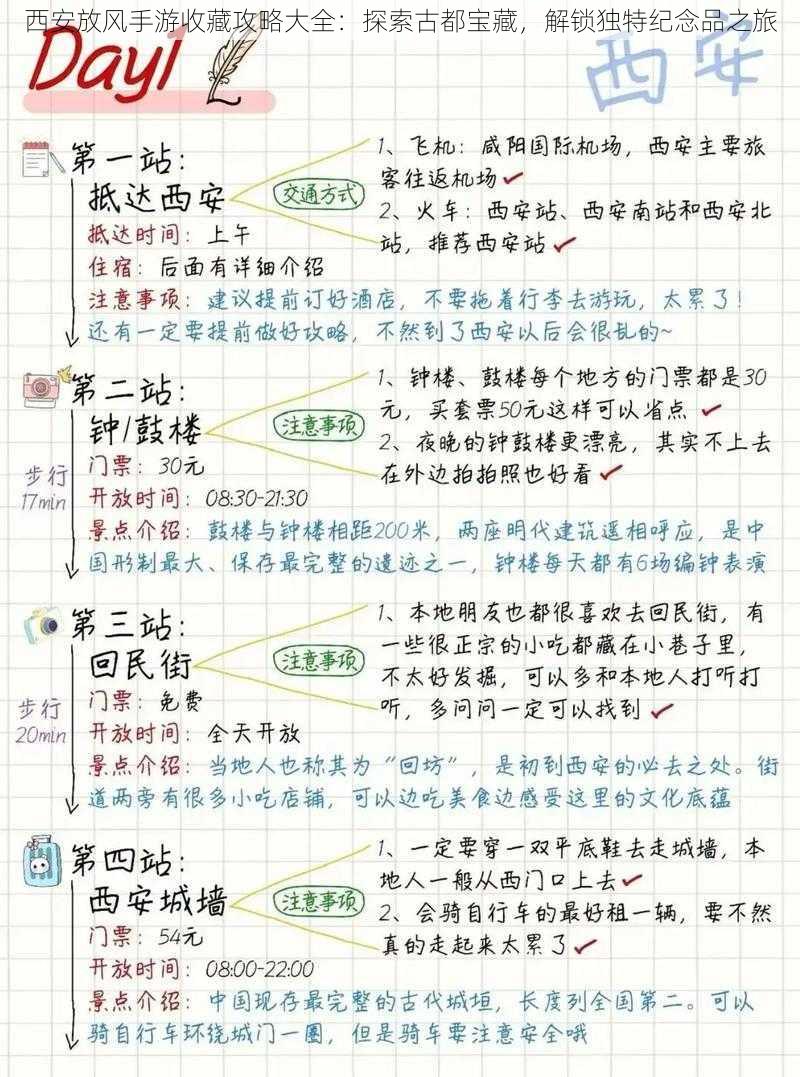 西安放风手游收藏攻略大全：探索古都宝藏，解锁独特纪念品之旅
Day1
西安
第一站：
抵达西安
抵达时间：上午
住宿：后面有详细介绍
交通方式
1、飞机：咸阳国际机场，西安主要旅
客往返机场
2、火车：西安站、西安南站和西安北
站，推荐西安站
注意事项：建议提前订好酒店，不要拖着行李去游玩，太累了！
还有一定要提前做好攻略，不然到了西安以后会很乱的~
第二站：
钟/鼓楼
门票：30元
开放时间：08:30-21:30
注意事项
1、钟楼、鼓楼每个地方的门票都是30
元，买套票50元这样可以省点
2、夜晚的钟鼓楼更漂亮，其实不上去
在外边拍拍照也好看
步行
17min
景点介绍：鼓楼与钟楼相距200米，两座明代建筑遥相呼应，是中
国形制最大、保存最完整的遗迹之一，钟楼每天都有6场编钟表演
第三站：
回民街
门票：免费
开放时间：全天开放
注意事项
1、本地朋友也都很喜欢去回民街，有
一些很正宗的小吃都藏在小巷子里，
不太好发掘，可以多和本地人打听打
听，多问问一定可以找到
步行
20min
景点介绍：当地人也称其为“回坊”，是初到西安的必去之处。街
道两旁有很多小吃店铺，可以边吃美食边感受这里的文化底蕴
第四站：
西安城墙
门票：54元
开放时间：08:00-22:00
注意事项
1、一定要穿一双平底鞋去走城墙，本
地人一般从西门口上去
2、会骑自行车的最好租一辆，要不然
真的走起来太累了
景点介绍：中国现存最完整的古代城垣，长度列全国第二。可以
骑自行车环绕城门一圈，但是骑车要注意安全哦